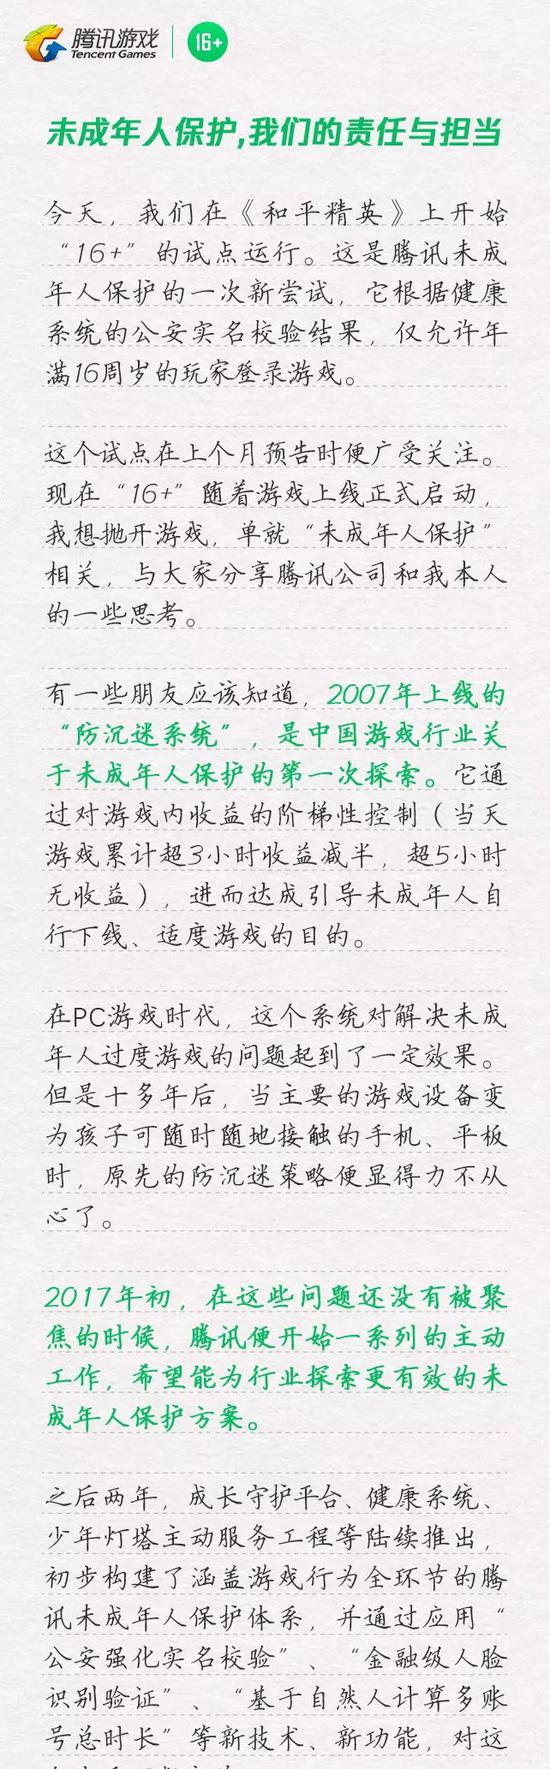 腾讯游戏
Tencent Games
16+
未成年人保护,我们的责任与担当
今天，我们在《和平精英》上开始
“16+”的试点运行。这是腾讯未成
年人保护的一次新尝试，它根据健康
系统的公安实名校验结果，仅允许年
满16周岁的玩家登录游戏。
这个试点在上个月预告时便广受关注。
现在“16+”随着游戏上线正式启动，
我想抛开游戏，单就“未成年人保护”
相关，与大家分享腾讯公司和我本人
的一些思考。
有一些朋友应该知道，2007年上线的
“防沉迷系统”，是中国游戏行业关
于未成年人保护的第一次探索。它通
过对游戏内收益的阶梯性控制（当天
游戏累计超3小时收益减半，超5小时
无收益），进而达成引导未成年人自
行下线、适度游戏的目的。
在PC游戏时代，这个系统对解决未成
年人过度游戏的问题起到了一定效果。
但是十多年后，当主要的游戏设备变
为孩子可随时随地接触的手机、平板
时，原先的防沉迷策略便显得力不从
心了。
2017年初，在这些问题还没有被聚
焦的时候，腾讯便开始一系列的主动
工作，希望能为行业探索更有效的未
成年人保护方案。
之后两年，成长守护平台、健康系统、
少年灯塔主动服务工程等陆续推出，
初步构建了涵盖游戏行为全环节的腾
讯未成年人保护体系，并通过应用“
公安强化实名校验”、“金融级人脸
识别验证”、“基于自然人计算多账
号总时长”等新技术、新功能，对这